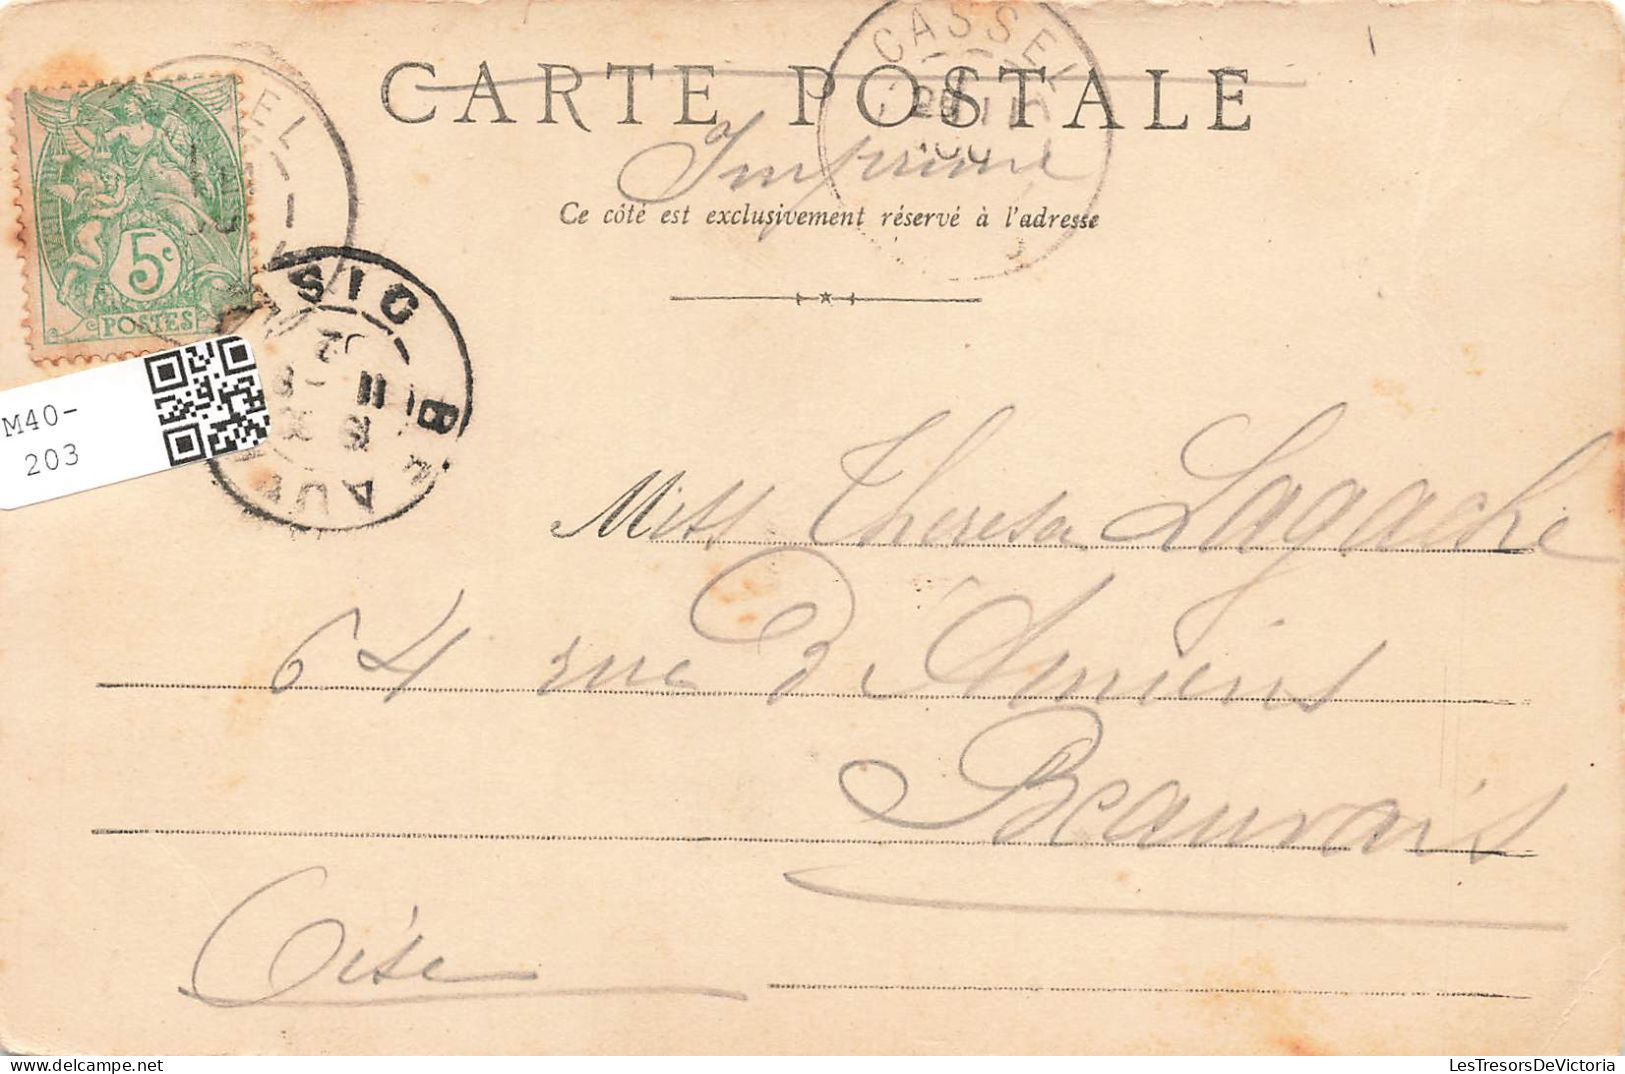 CARTE POSTALE
CASSEL
Imprimé
Ce côté est exclusivement réservé à l'adresse
5c
POSTES
M40-
203
Miss Theresa Lagache
64 rue d'Amiens
Beauvais
Oise
LesTresorsDeVictoria